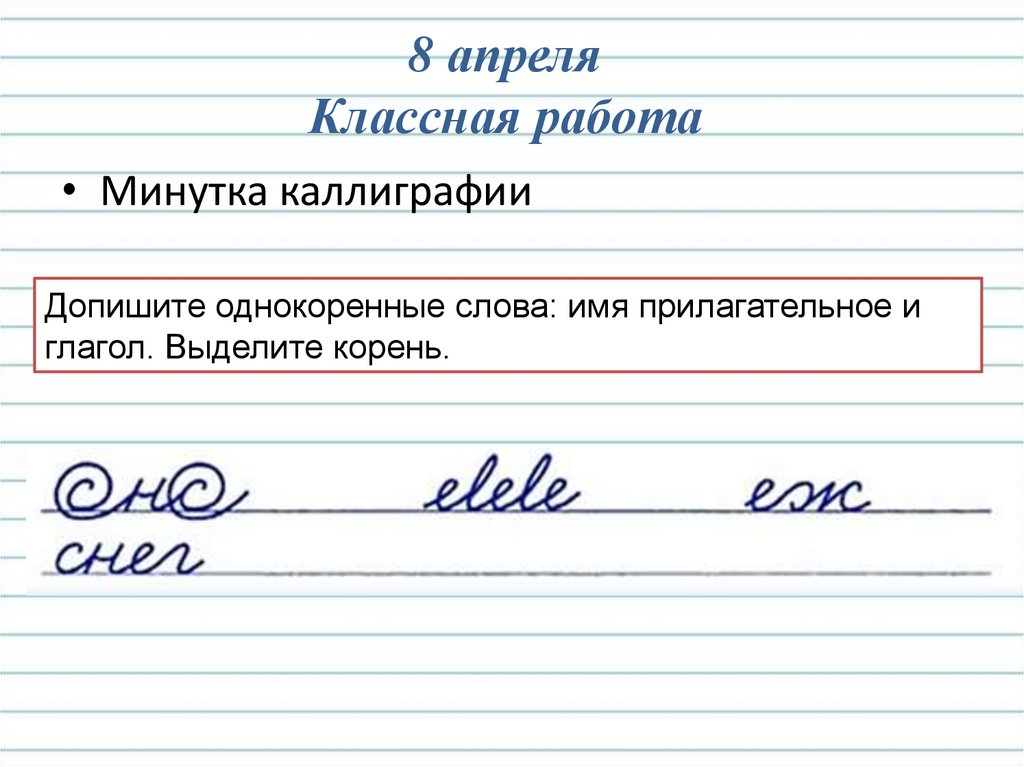 8 апреля
Классная работа
• Минутка каллиграфии
Допишите однокоренные слова: имя прилагательное и
глагол. Выделите корень.
снс елеlе еж
снег